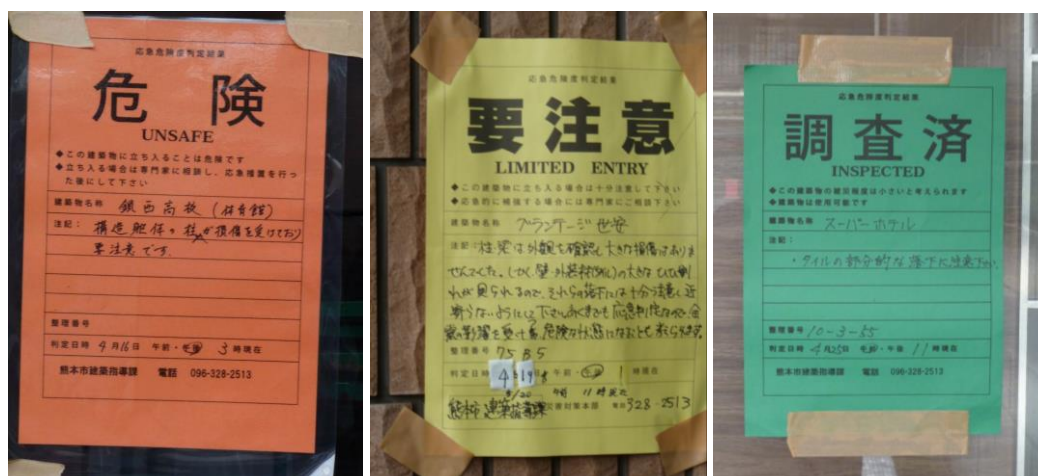 応急危険度判定結果
危険
UNSAFE
◆この建築物に立ち入ることは危険です
◆立ち入る場合は専門家に相談し、応急措置を行っ
た後にして下さい
建築物名称 鎮西高校(体育館)
注記: 構造躯体の柱が損傷を受けており
要注意です。
整理番号
判定日時 4月16日 午前・午後 3時現在
熊本市建築指導課 電話 096-328-2513
応急危険度判定結果
要注意
LIMITED ENTRY
◆この建築物に立ち入る場合は十分注意して下さい
◆応急的に補強する場合には専門家にご相談下さい
建築物名称 グランテージ世安
注記: 柱・梁は外観を確認し大きな損傷はありま
せんでした。しかし、壁・外装材(タイル)の大きなひび割
れが見られるので、それらの落下には十分注意し近
整理番号 75B5
判定日時 4 19 午前・午後 1時現在
4/20 午前 11時現在
熊本市建築指導課 災害対策本部 電話 328-2513
応急危険度判定結果
調査済
INSPECTED
◆この建築物の被災程度は小さいと考えられます
◆建築物は使用可能です
建築物名称 スーパーホテル
注記:
・タイルの部分的な落下に注意下さい。
整理番号 10-3-55
判定日時 4月25日 午前・午後 11時現在
熊本市建築指導課 電話 096-328-2513